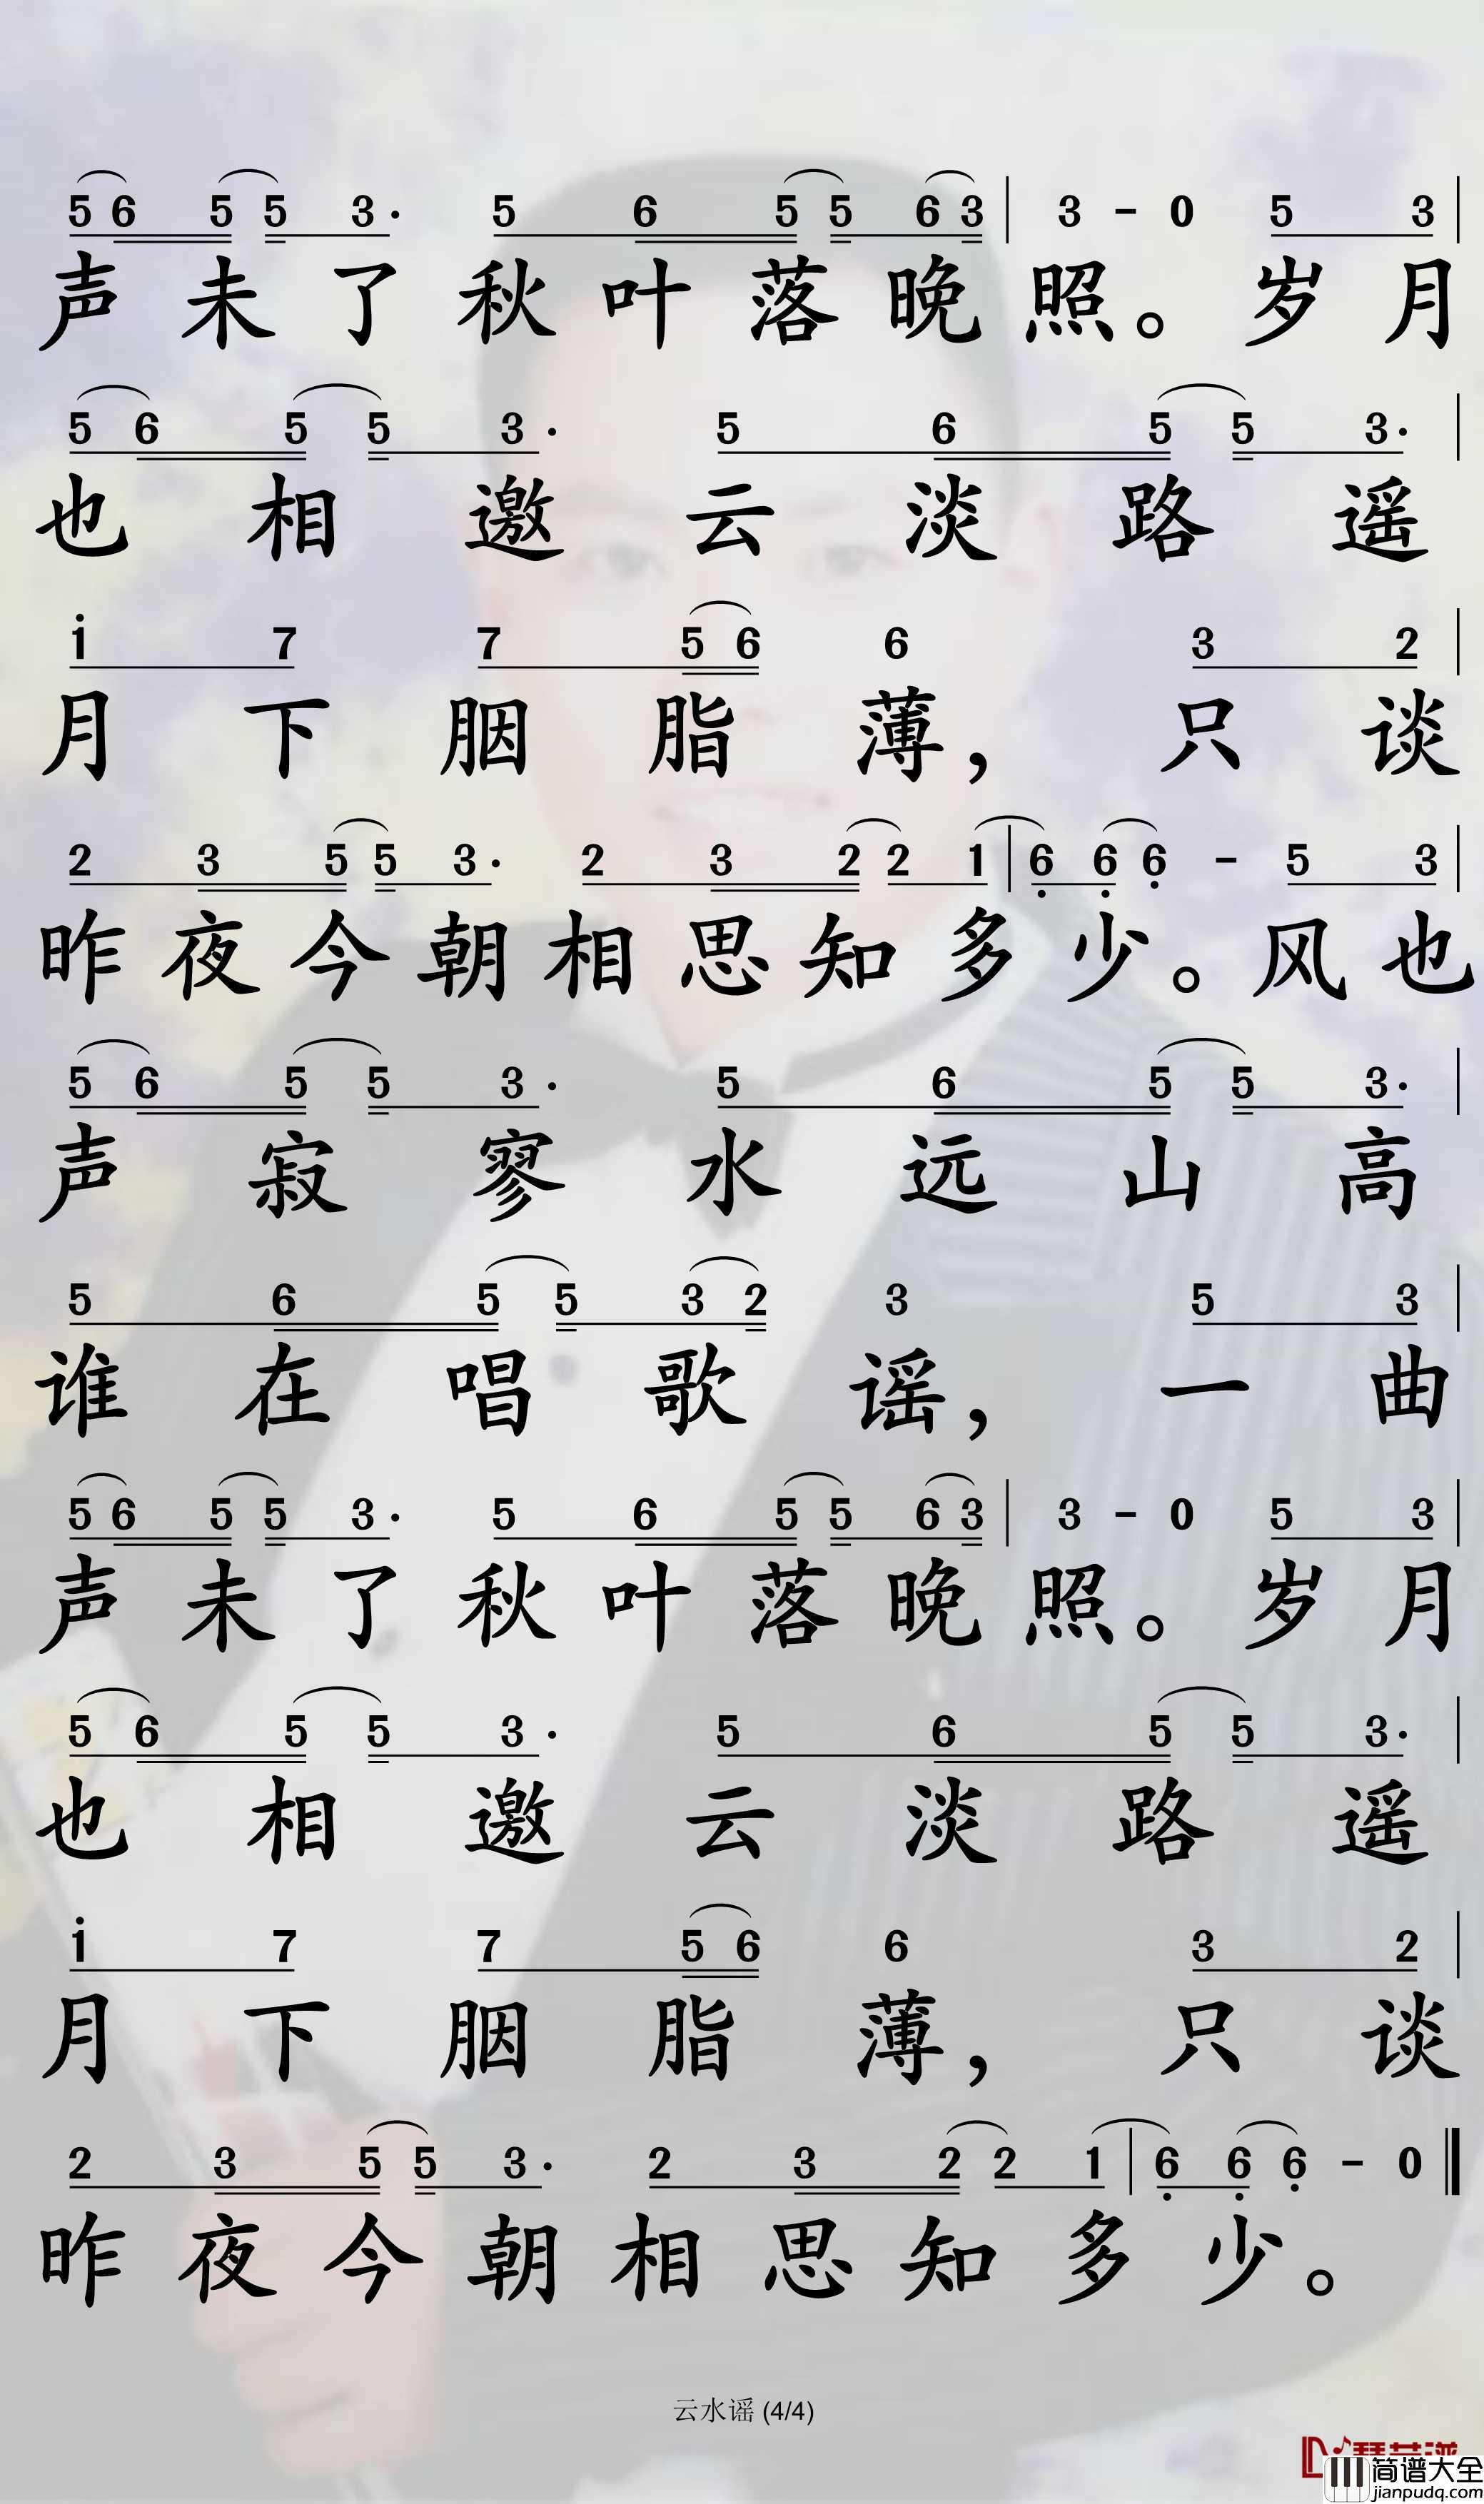 5 6 5 5 3· 5 6 5 5 6 3 | 3 - 0 5 3 |
声未了秋叶落晚照。岁月
5 6 5 5 3· 5 6 5 5 3· |
也相邀云淡路遥
i 7 7 5 6 6 3 2 |
月下胭脂薄，只谈
2 3 5 5 3· 2 3 2 2 1 | 6̣ 6̣ 6̣ - 5 3 |
昨夜今朝相思知多少。风也
5 6 5 5 3· 5 6 5 5 3· |
声寂寥水远山高
5 6 5 5 3 2 3 5 3 |
谁在唱歌谣，一曲
5 6 5 5 3· 5 6 5 5 6 3 | 3 - 0 5 3 |
声未了秋叶落晚照。岁月
5 6 5 5 3· 5 6 5 5 3· |
也相邀云淡路遥
i 7 7 5 6 6 3 2 |
月下胭脂薄，只谈
2 3 5 5 3· 2 3 2 2 1 | 6̣ 6̣ 6̣ - 0 ‖
昨夜今朝相思知多少。
云水谣 (4/4)
简谱大全
jianpudq.com